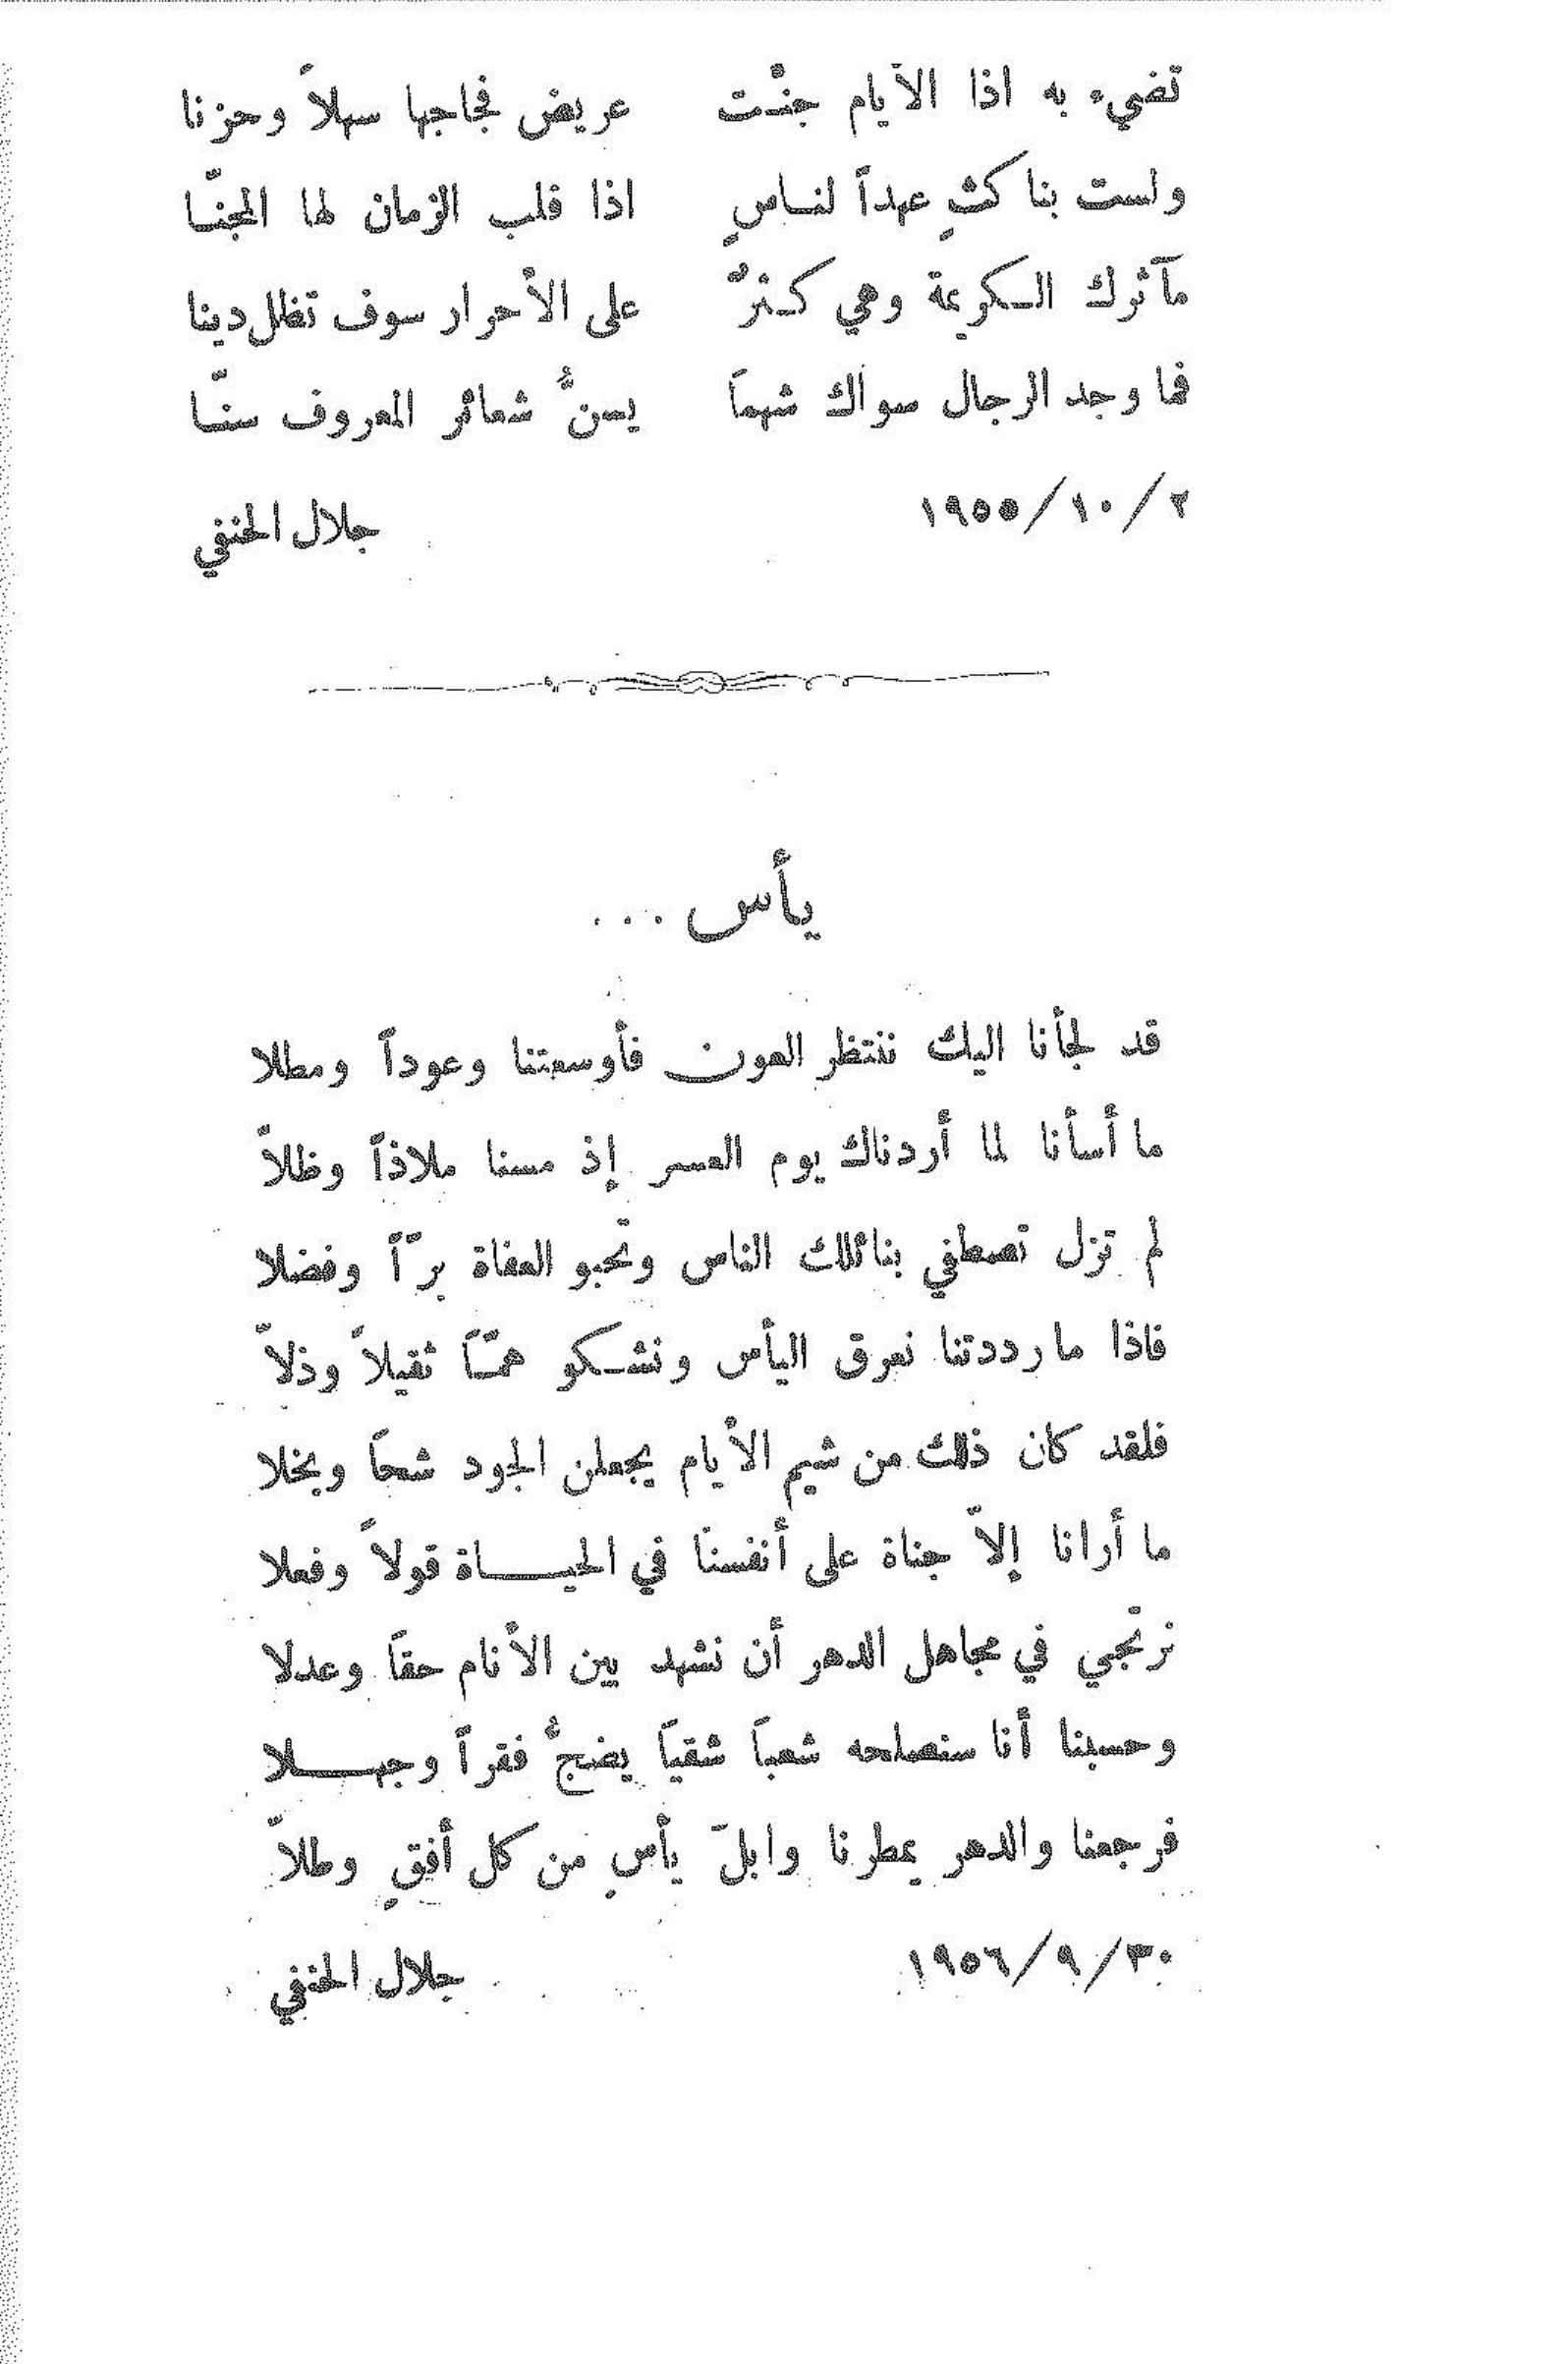 تضيء به اذا الأيام جنّت عريض فجاجها سهلاً وحزنا
ولست بناكثٍ عهداً لناسٍ اذا قلب الزمان لها المجنّا
مآثرك الكريمة وهي كثرٌ على الأحرار سوف تظل دينا
فما وجد الرجال سواك شهماً يسنُّ شعائر المعروف سنّا
٢/١٠/١٩٥٥ جلال الحنفي
يأس ...
قد لجأنا اليك ننتظر العون فأوسعتنا وعوداً ومطلا
ما أسأنا لما أردناك يوم العسر إذ مسنا ملاذاً وظلاّ
لم تزل تصطفي بنائلك الناس وتحبو العفاة برّاً وفضلا
فاذا ما رددتنا نعرق اليأس ونشكو همّاً ثقيلاً وذلاّ
فلقد كان ذلك من شيم الأيام يجعلن الجود شحاً وبخلا
ما أرانا إلاّ جناة على أنفسنا في الحياة قولاً وفعلا
نرتجي في مجاهل الدهر أن نشهد بين الأنام حقاً وعدلا
وحسبنا أنا سنصلحه شعباً شقياً يضجُّ فقراً وجهلا
فرجعنا والدهر يمطرنا وابلَ يأسٍ من كل أفقٍ وطلاّ
٣٠/٩/١٩٥٦ جلال الحنفي